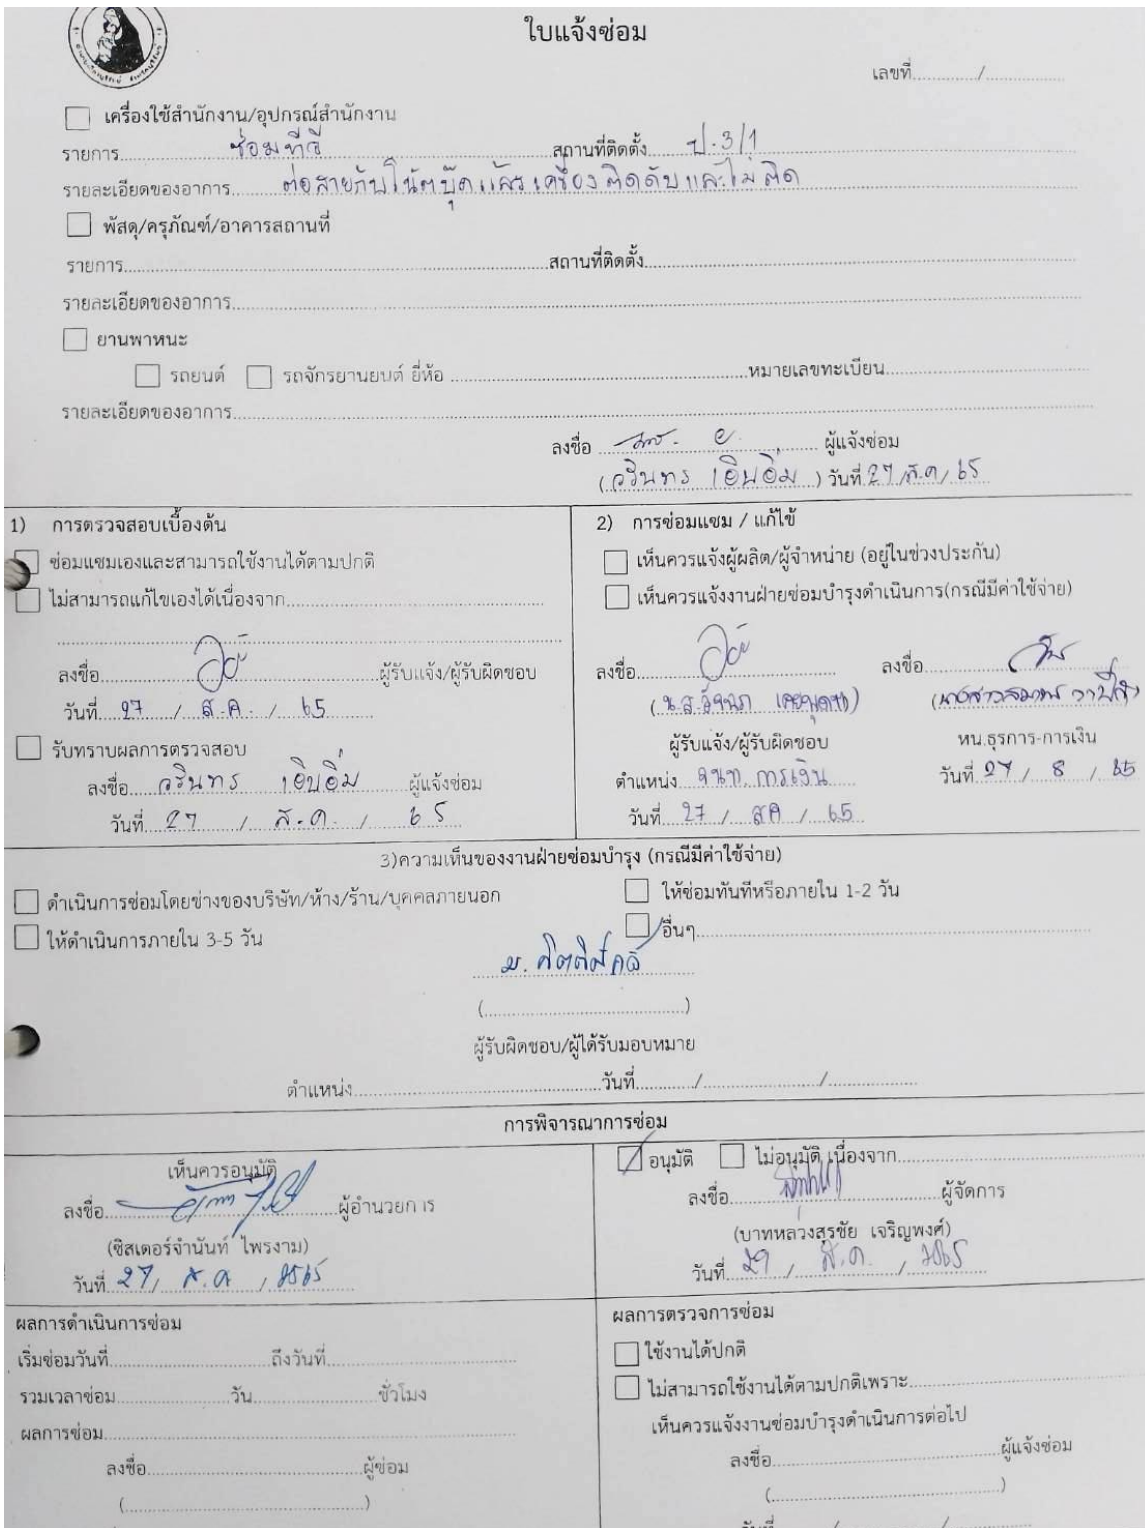 ใบแจ้งซ่อม
เลขที่............/..............
เครื่องใช้สำนักงาน/อุปกรณ์สำนักงาน
รายการ ซ่อมทีวี สถานที่ติดตั้ง ป.3/1
รายละเอียดของอาการ ต่อสายกับโน้ตบุ๊คแล้วเครื่องติดดับและไม่ติด
พัสดุ/ครุภัณฑ์/อาคารสถานที่
รายการ..............สถานที่ติดตั้ง..............
รายละเอียดของอาการ..............
ยานพาหนะ
รถยนต์ รถจักรยานยนต์ ยี่ห้อ ..............หมายเลขทะเบียน..............
รายละเอียดของอาการ..............
ลงชื่อ ผู้แจ้งซ่อม
(วรินทร เอิบอิ่ม) วันที่ 27/ส.ค/65
1) การตรวจสอบเบื้องต้น
ซ่อมแซมเองและสามารถใช้งานได้ตามปกติ
ไม่สามารถแก้ไขเองได้เนื่องจาก..............
ลงชื่อ ผู้รับแจ้ง/ผู้รับผิดชอบ
วันที่ 27 / ส.ค. / 65
รับทราบผลการตรวจสอบ
ลงชื่อ วรินทร เอิบอิ่ม ผู้แจ้งซ่อม
วันที่ 27 / ส.ค. / 65
2) การซ่อมแซม / แก้ไข
เห็นควรแจ้งผู้ผลิต/ผู้จำหน่าย (อยู่ในช่วงประกัน)
เห็นควรแจ้งงานฝ่ายซ่อมบำรุงดำเนินการ(กรณีมีค่าใช้จ่าย)
ลงชื่อ ลงชื่อ
(น.ส. (นางสาว
ผู้รับแจ้ง/ผู้รับผิดชอบ หน.ธุรการ-การเงิน
ตำแหน่ง จนท.การเงิน วันที่ 27 / 8 / 65
วันที่ 27 / สค / 65
3)ความเห็นของงานฝ่ายซ่อมบำรุง (กรณีมีค่าใช้จ่าย)
ดำเนินการซ่อมโดยช่างของบริษัท/ห้าง/ร้าน/บุคคลภายนอก ให้ซ่อมทันทีหรือภายใน 1-2 วัน
ให้ดำเนินการภายใน 3-5 วัน อื่นๆ..............
ม. กิตติศักดิ์
(..............)
ผู้รับผิดชอบ/ผู้ได้รับมอบหมาย
ตำแหน่ง..............วันที่........../............../..............
การพิจารณาการซ่อม
เห็นควรอนุมัติ
ลงชื่อ ผู้อำนวยการ
(ซิสเตอร์จำนันท์ ไพรงาม)
วันที่ 27/ ส.ค / 2565
อนุมัติ ไม่อนุมัติ เนื่องจาก..............
ลงชื่อ ผู้จัดการ
(บาทหลวงสุรชัย เจริญพงศ์)
วันที่ 27 / ส.ค. / 2565
ผลการดำเนินการซ่อม
เริ่มซ่อมวันที่..............ถึงวันที่..............
รวมเวลาซ่อม..............วัน..............ชั่วโมง
ผลการซ่อม..............
ลงชื่อ..............ผู้ซ่อม
(..............)
ผลการตรวจการซ่อม
ใช้งานได้ปกติ
ไม่สามารถใช้งานได้ตามปกติเพราะ..............
เห็นควรแจ้งงานซ่อมบำรุงดำเนินการต่อไป
ลงชื่อ..............ผู้แจ้งซ่อม
(..............)